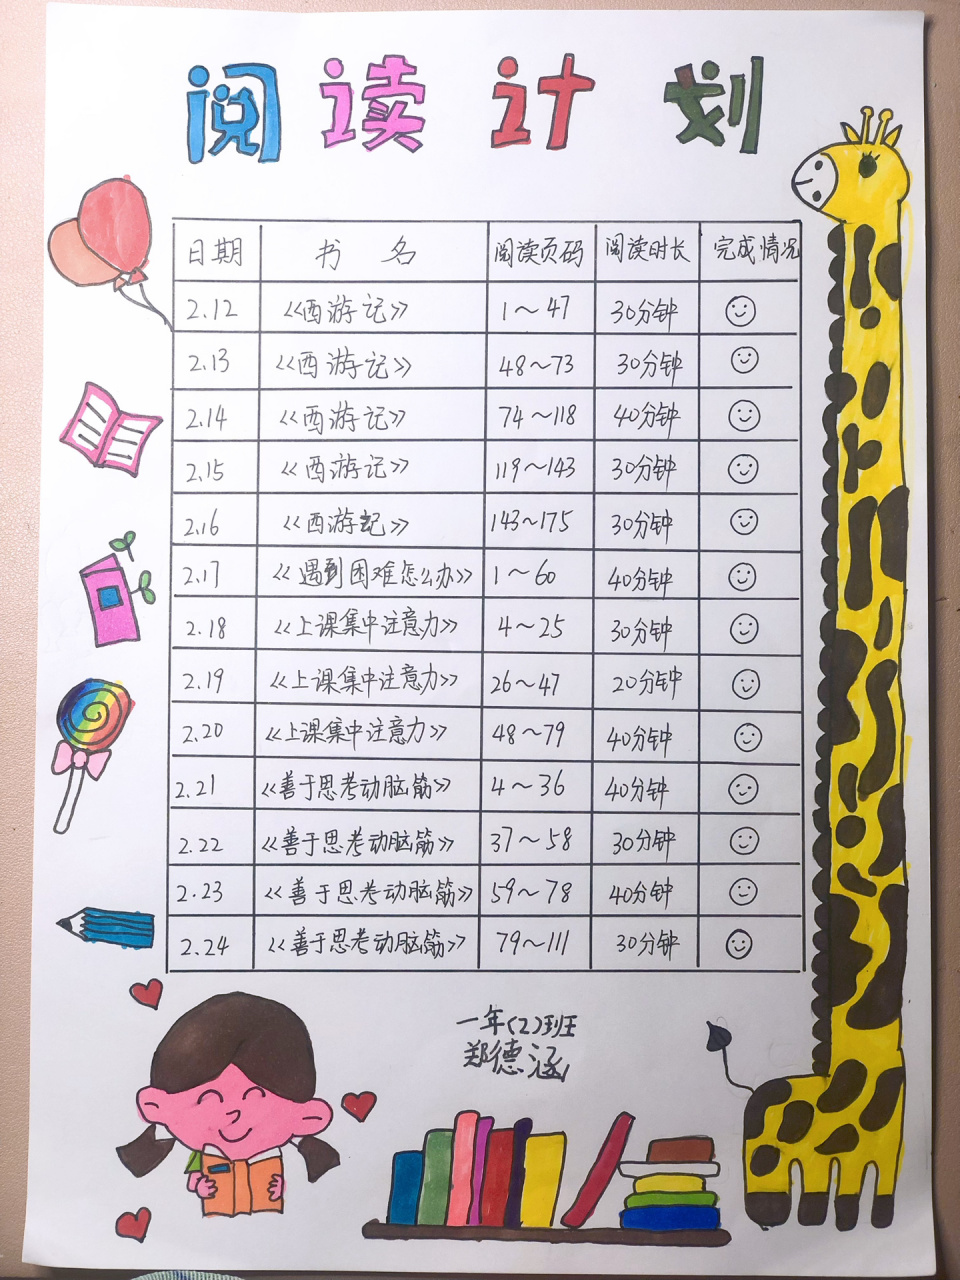 阅读计划
日期 书名 阅读页码 阅读时长 完成情况
2.12 《西游记》 1～47 30分钟
2.13 《西游记》 48～73 30分钟
2.14 《西游记》 74～118 40分钟
2.15 《西游记》 119～143 30分钟
2.16 《西游记》 143～175 30分钟
2.17 《遇到困难怎么办》 1～60 40分钟
2.18 《上课集中注意力》 4～25 30分钟
2.19 《上课集中注意力》 26～47 20分钟
2.20 《上课集中注意力》 48～79 40分钟
2.21 《善于思考动脑筋》 4～36 40分钟
2.22 《善于思考动脑筋》 37～58 30分钟
2.23 《善于思考动脑筋》 59～78 40分钟
2.24 《善于思考动脑筋》 79～111 30分钟
一年(2)班
郑德涵